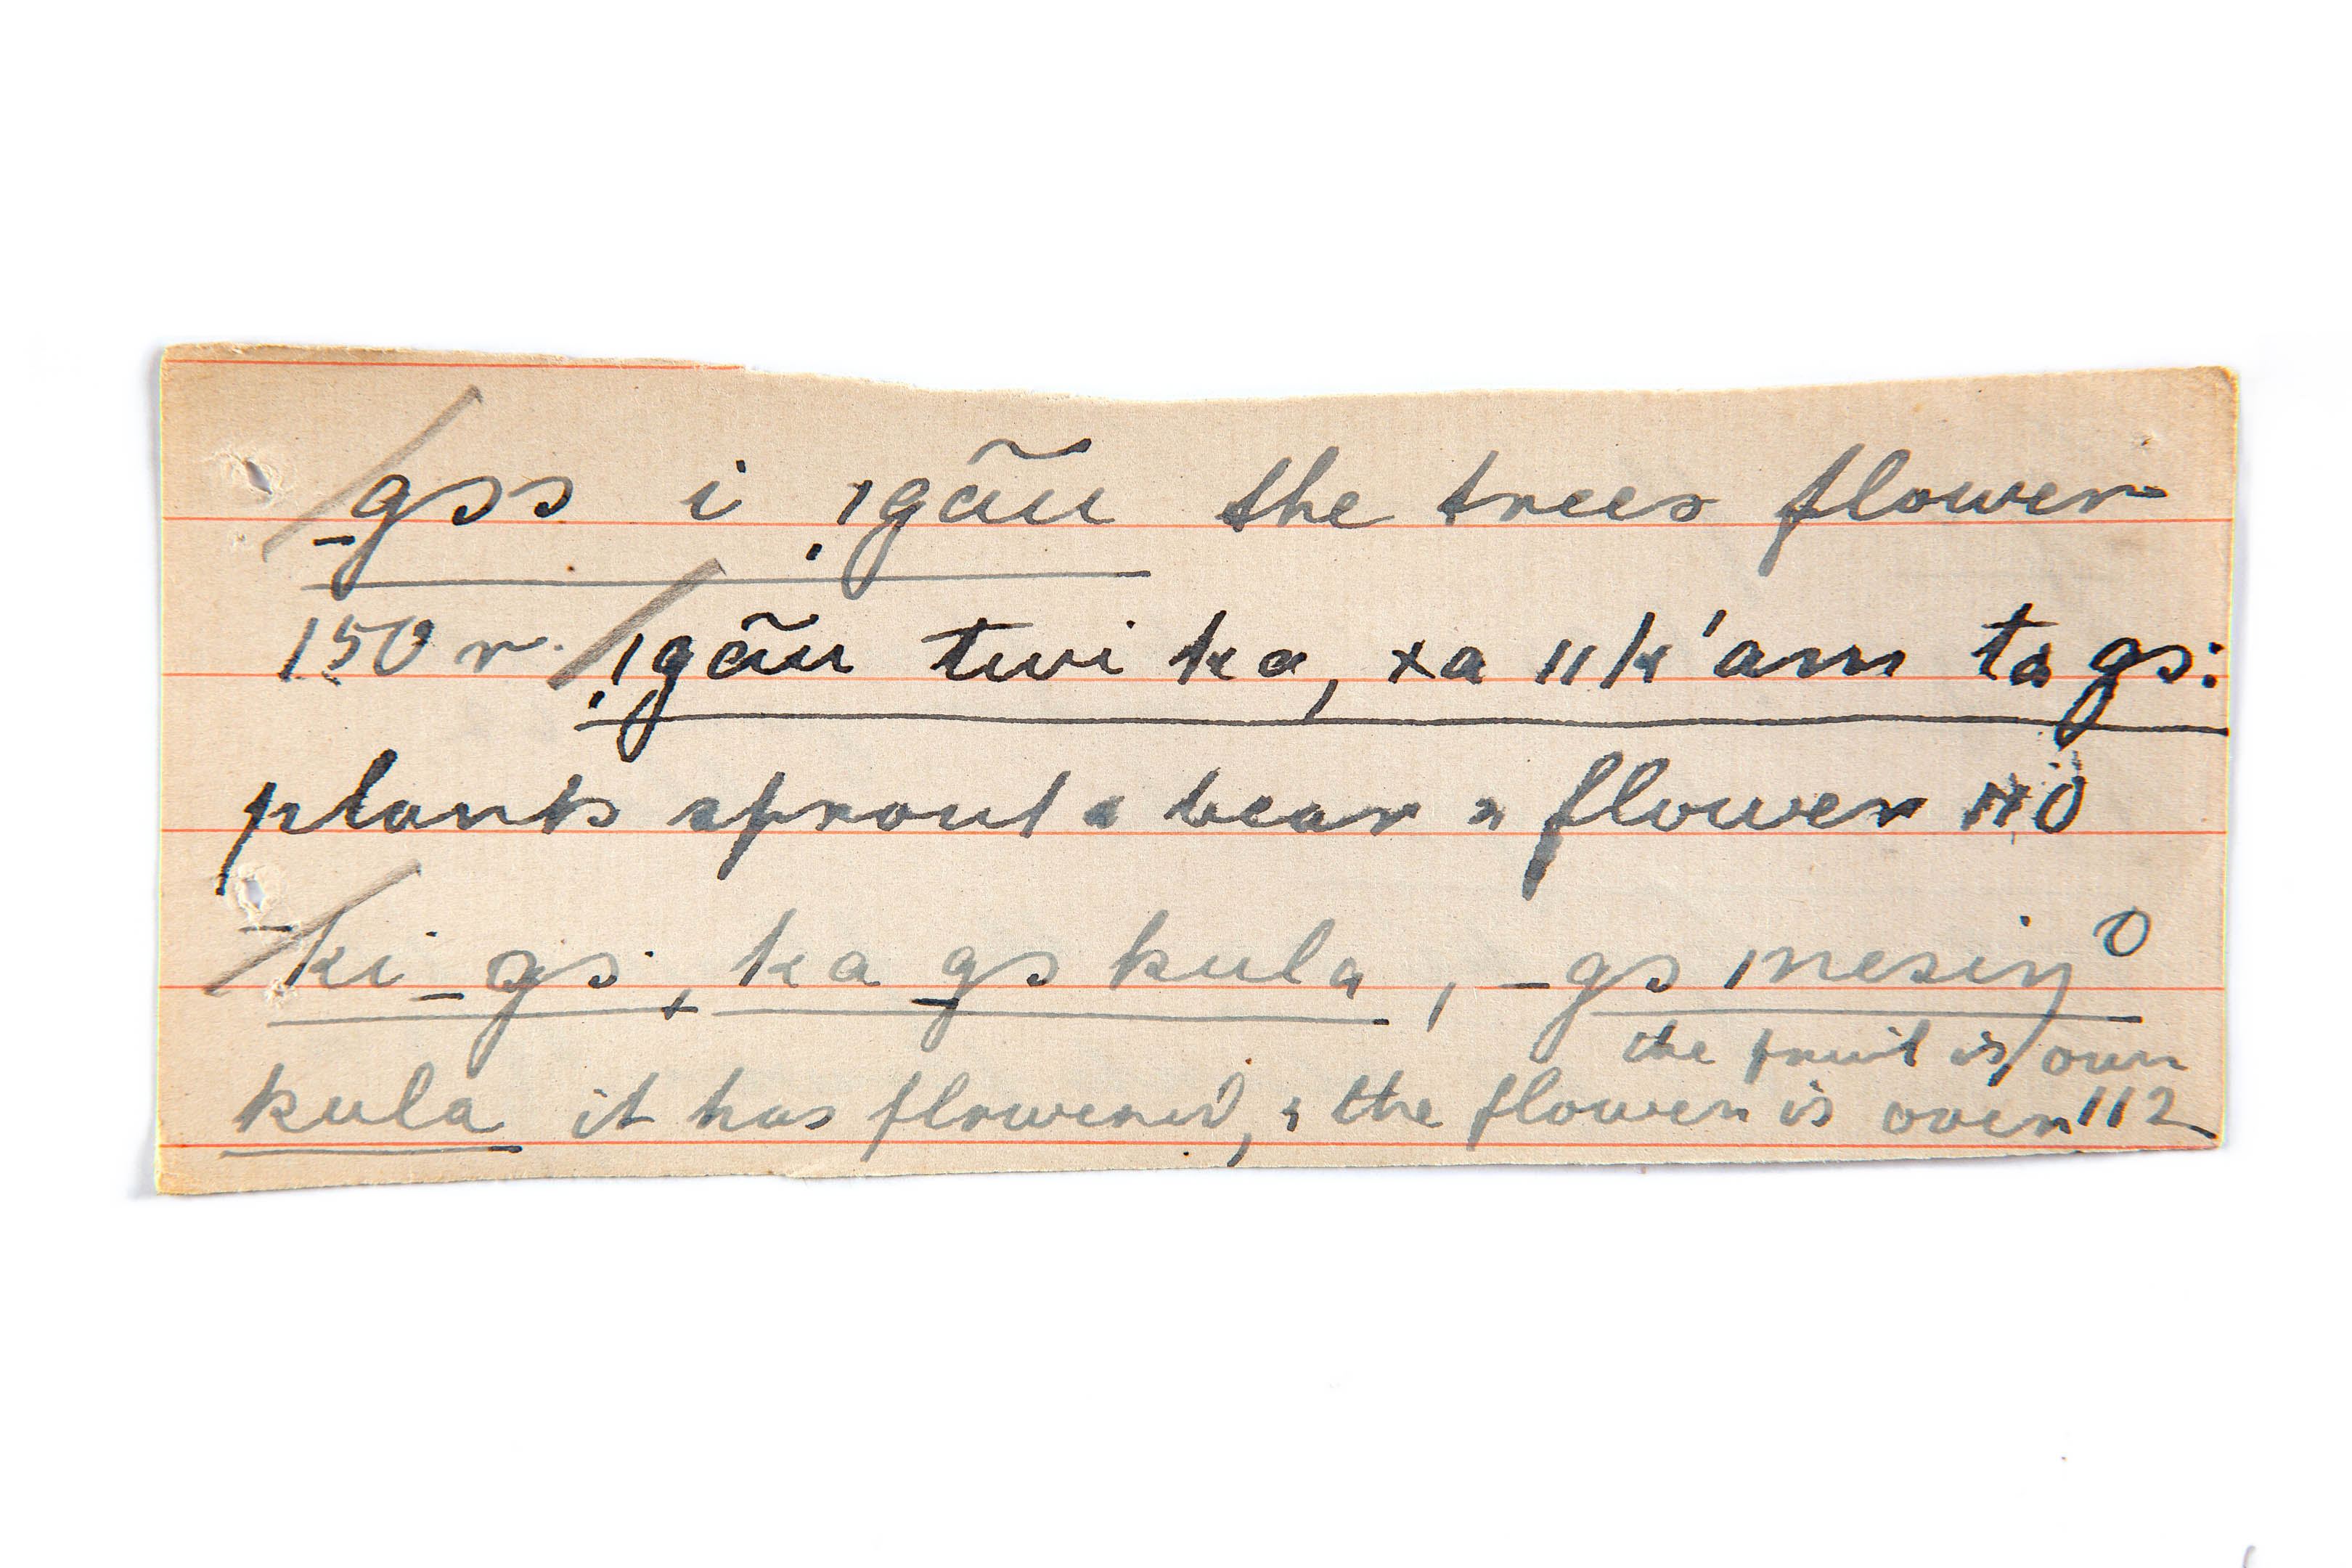 _gɔɔ i ˌǀgãu the trees flower
150 r. ˌǀgãu twi ka, xa ǁk'am ta gɔ:
plants sprout & bear a flower 110
¯ki _gɔ, ka _gɔ kula, _gɔ ǀnesiŋ
the fruit is over
kula it has flowered, & the flower is over 112